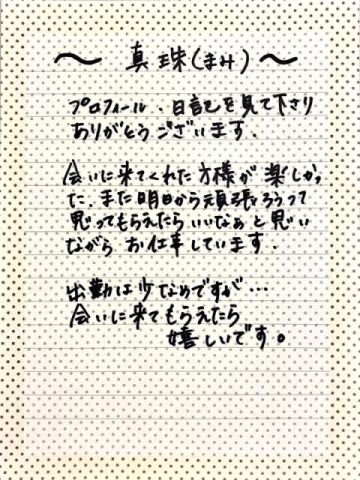 ～真珠(まみ)～
プロフィール・日記を見て下さり
ありがとうございます.
会いに来てくれた方様が楽しかっ
た.また明日から頑張ろうって
思ってもらえたらいいなぁと思い
ながらお仕事しています.
出勤は少なめですが…
会いに来てもらえたら
嬉しいです。